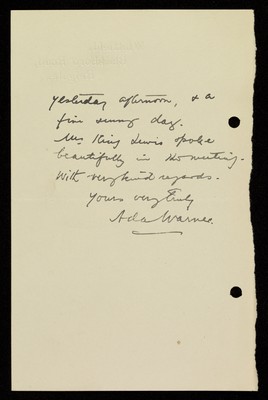 yesterday afternoon, & a
fine sunny day.
Mrs King Lewis spoke
beautifully in the meeting.
With very kind regards.
Yours very truly
Ada Warner